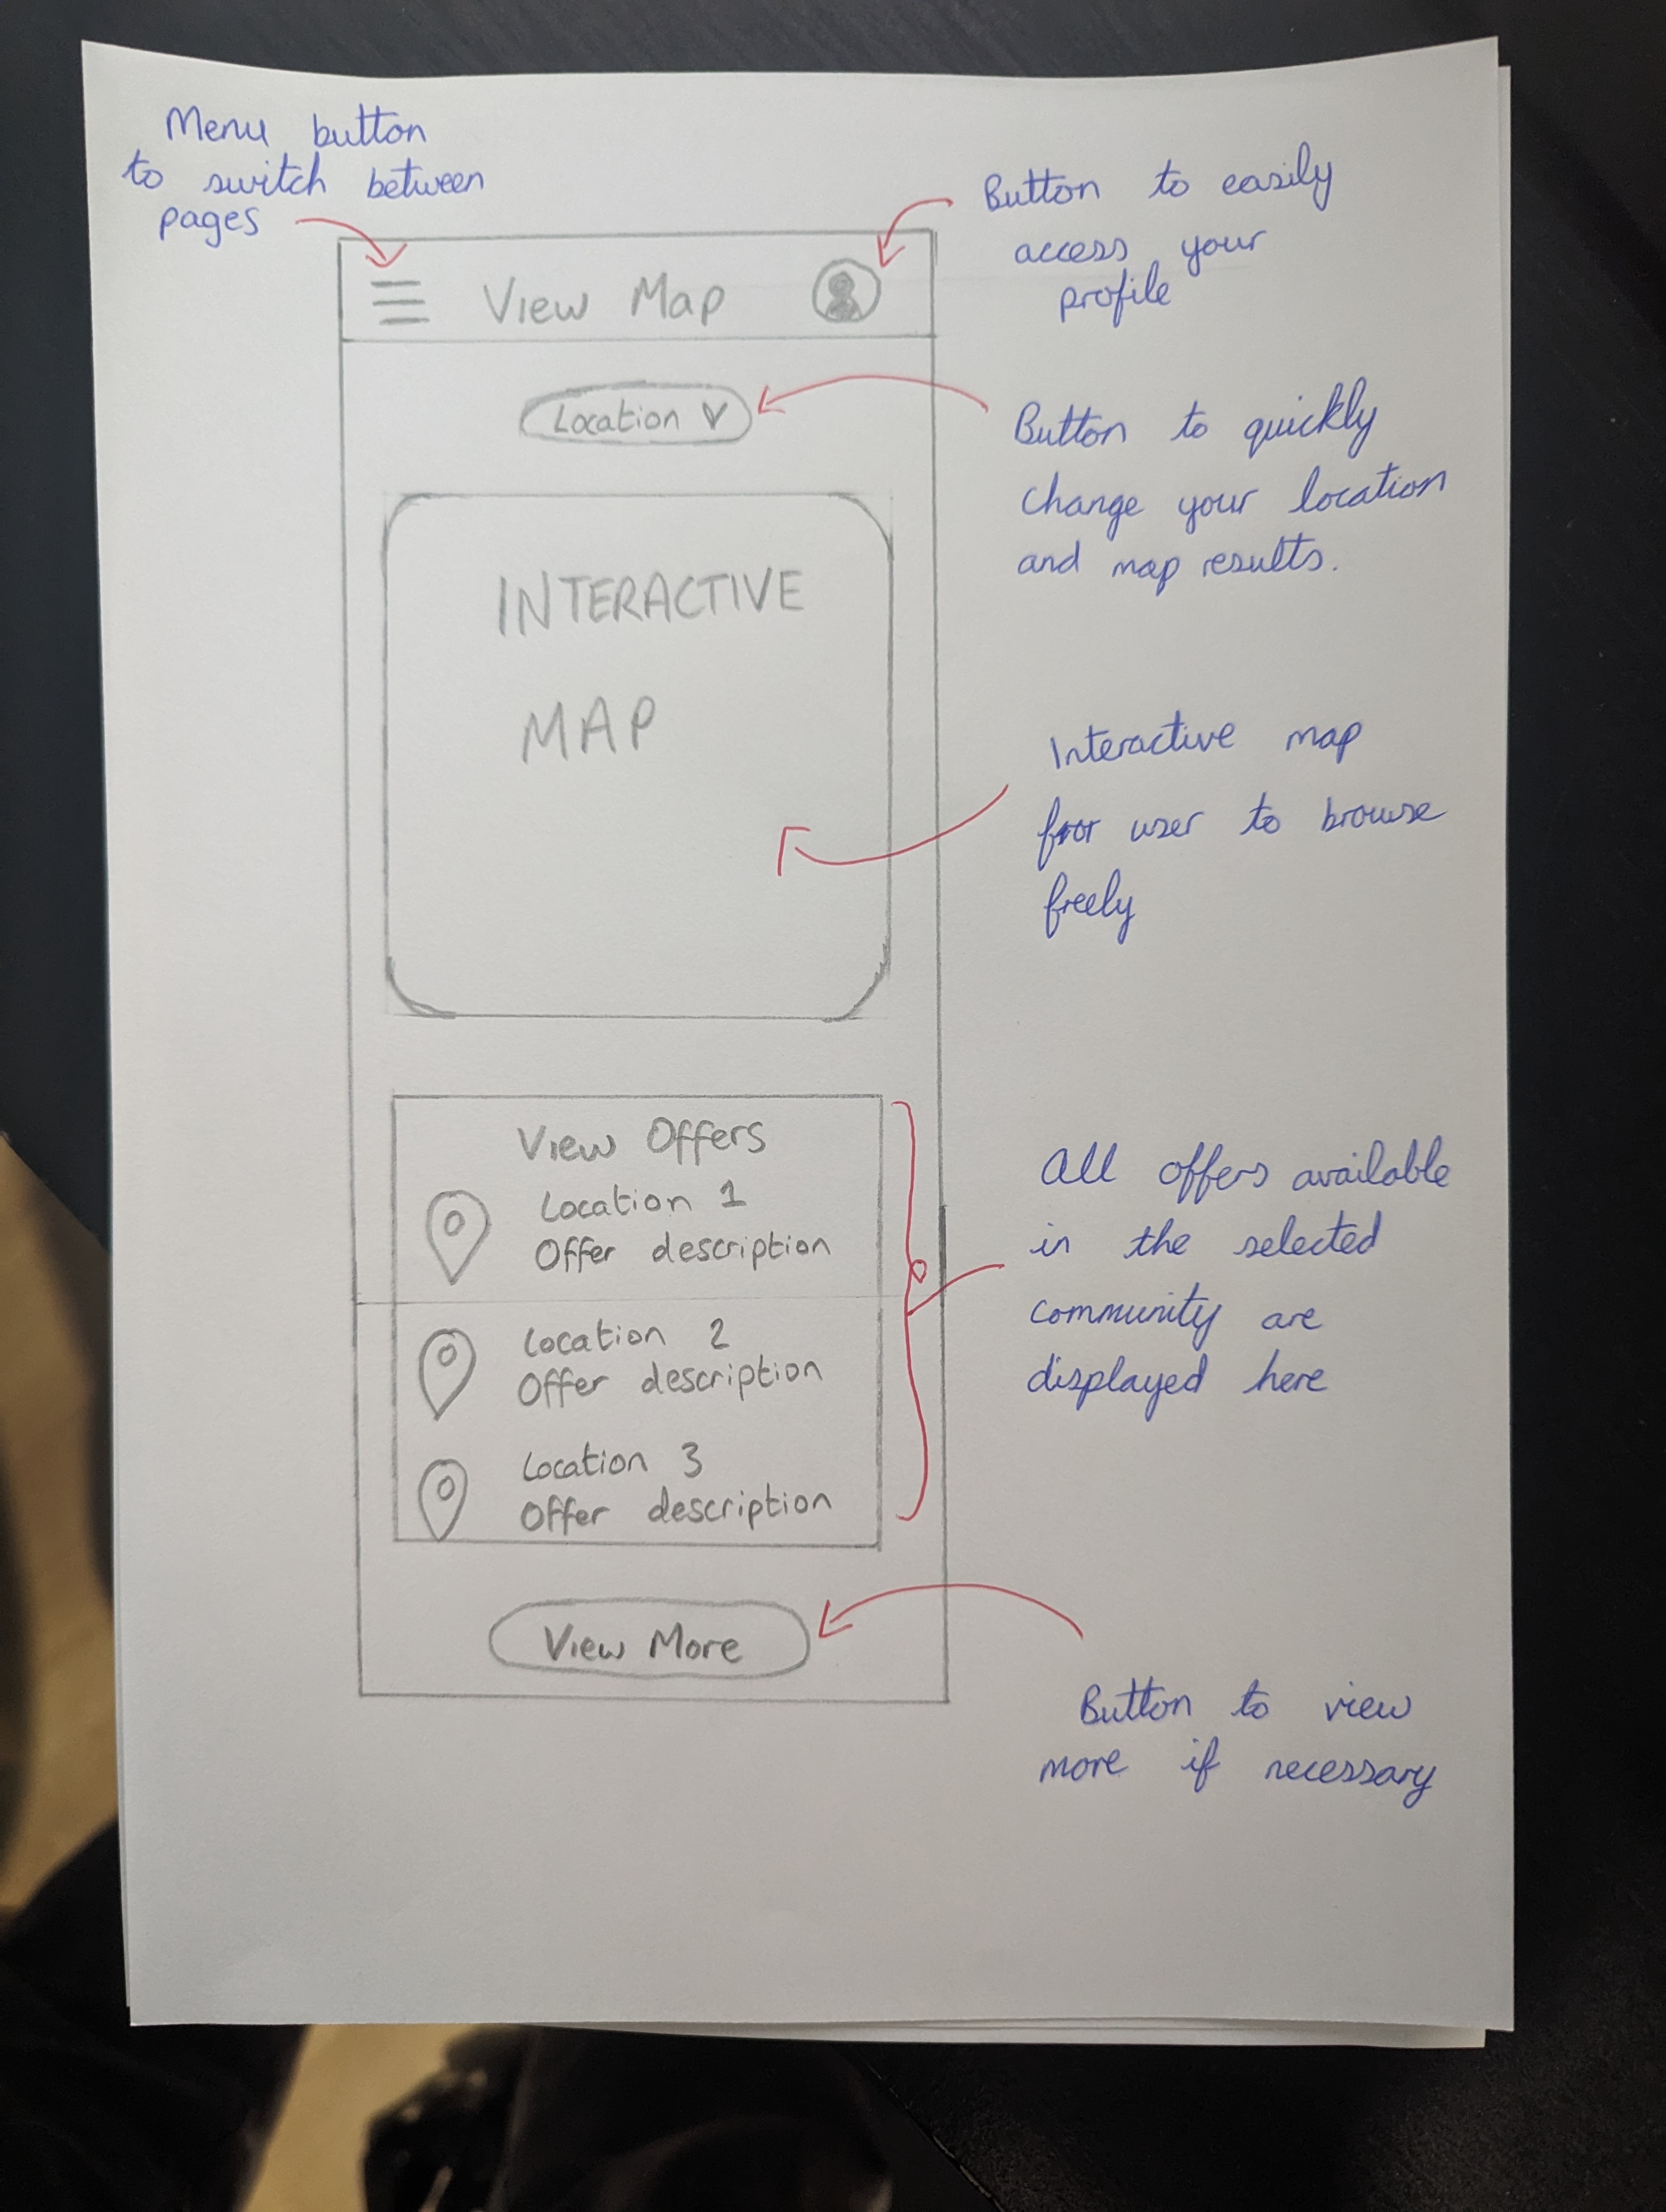 Menu button
to switch between
pages
Button to easily
access your
profile
View Map
Location
Button to quickly
change your location
and map results.
INTERACTIVE
MAP
Interactive map
for user to browse
freely
View Offers
Location 1
Offer description
Location 2
Offer description
Location 3
Offer description
All offers available
in the selected
community are
displayed here
View More
Button to view
more if necessary